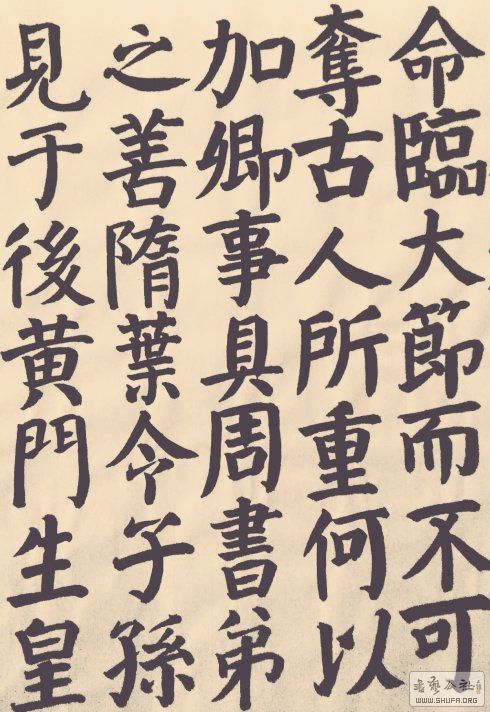 命臨大節而不可
奪古人所重何以
加卿事具周書弟
之善隋葉令子孫
見于後黄門生皇
WWW.SHUFA.ORG